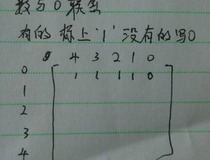 数与0联型
有的 标上'1' 没有的写0
4 3 2 1 0
0 1 1 1 1 0
1
2
3
4